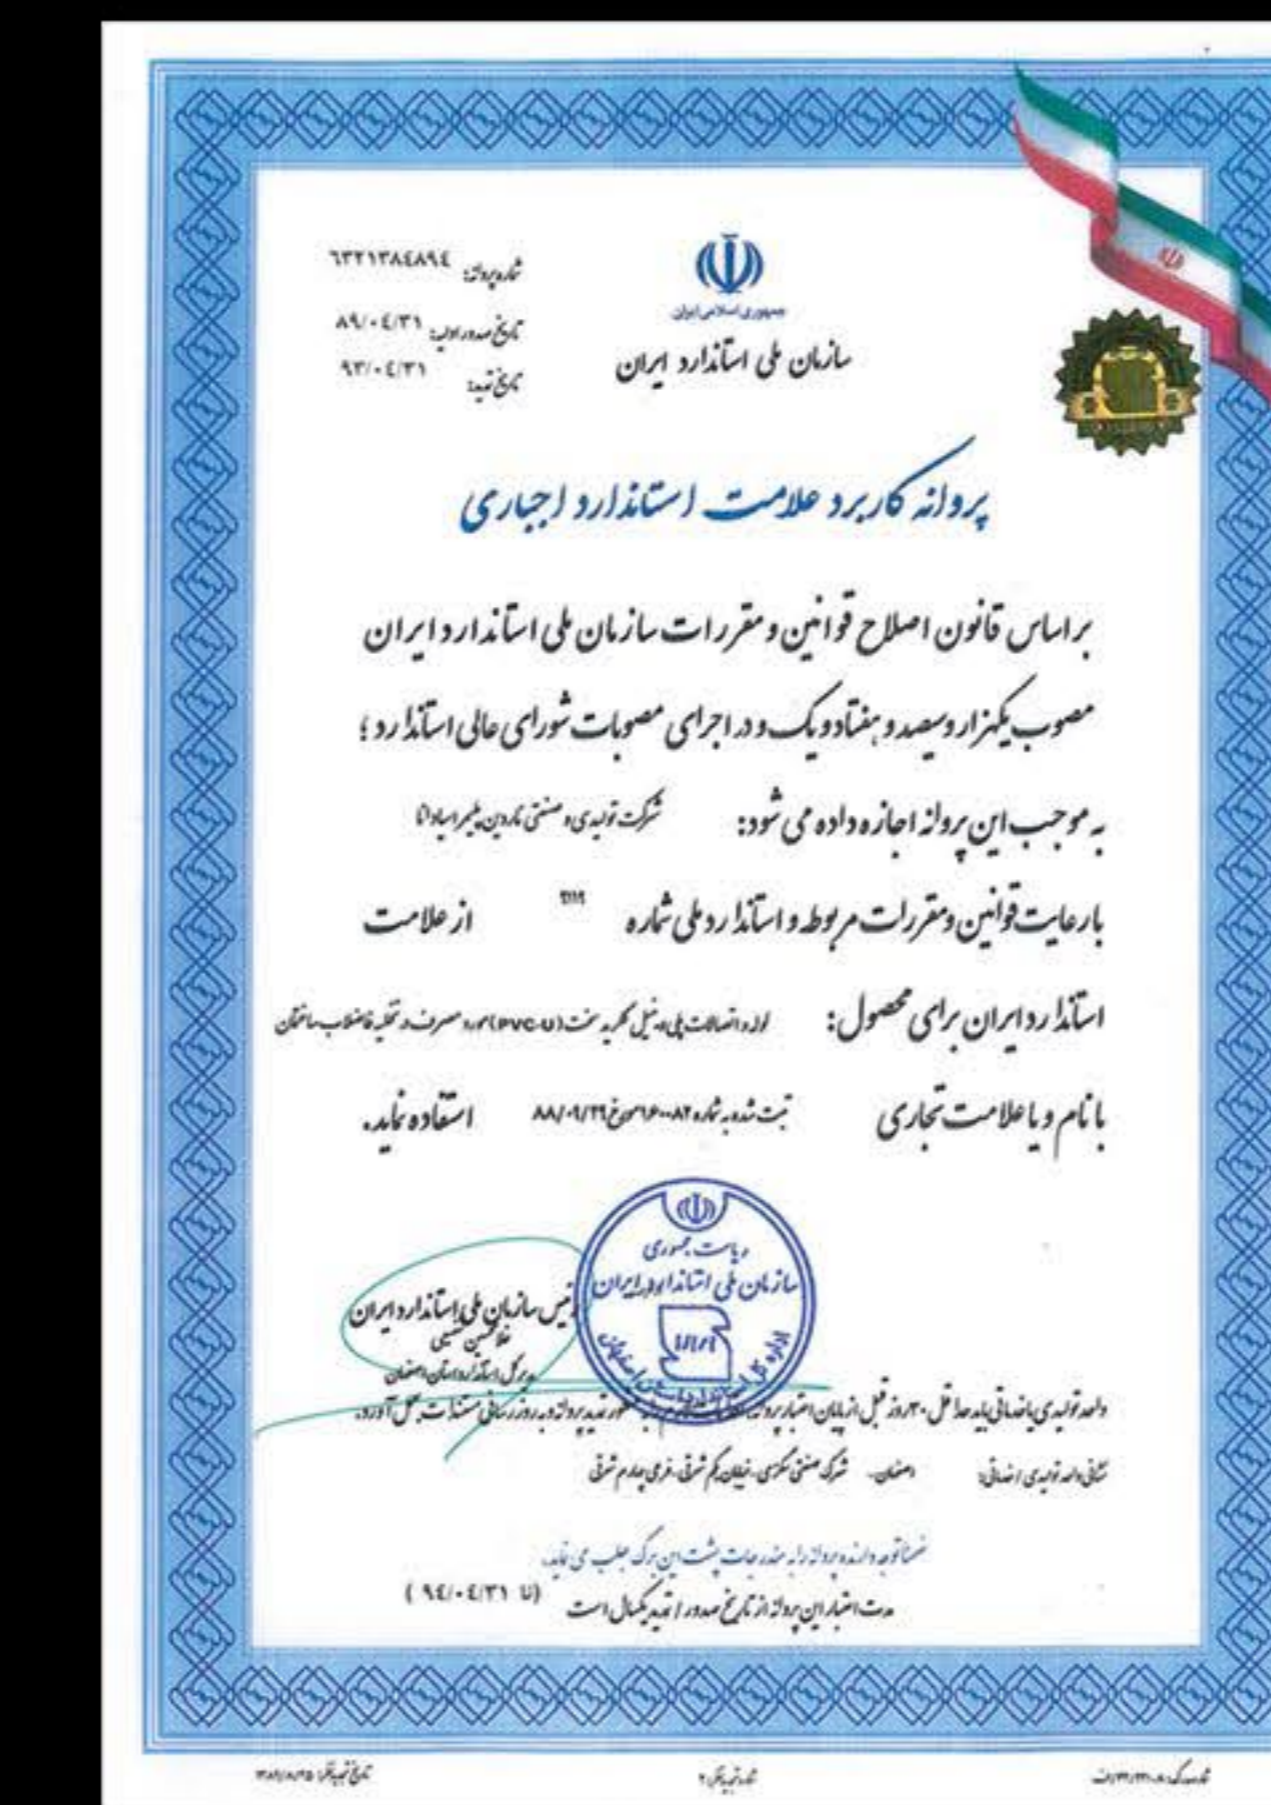 شماره پروانه: ٦٣٢١٣٨٤٨٩٤
تاریخ صدور اولیه: ٨٩/٠٤/٣١
تاریخ تمدید: ٩٣/٠٤/٣١
جمهوری اسلامی ایران
سازمان ملی استاندارد ایران
پروانه کاربرد علامت استاندارد اجباری
براساس قانون اصلاح قوانین و مقررات سازمان ملی استاندارد ایران
مصوب یکهزار و سیصد و هفتاد و یک و در اجرای مصوبات شورای عالی استاندارد ؛
به موجب این پروانه اجازه داده می شود: شرکت تولیدی و صنعتی ناردین پلیمر اسپادانا
با رعایت قوانین و مقررات مربوطه و استاندارد ملی شماره از علامت
استاندارد ایران برای محصول: لوله و اتصالات پلی وینیل کلرید سخت (PVC-U) مورد مصرف در تخلیه فاضلاب ساختمان
با نام و یا علامت تجاری ثبت شده به شماره ١٦٠٠٨٢ مورخ ٨٨/٠٩/٢٩ استفاده نماید.
ریاست جمهوری
سازمان ملی استاندارد ایران
اداره کل استاندارد استان اصفهان
رئیس سازمان ملی استاندارد ایران
مدیر کل استاندارد استان اصفهان
واحد تولیدی یا خدماتی باید حداقل ٣٠ روز قبل از پایان اعتبار پروانه منظور تمدید پروانه و به روز رسانی مستندات به عمل آورد.
نشانی واحد تولیدی / خدماتی: اصفهان- شهرک صنعتی خیابان یکم شرقی - فرعی چهارم شرقی
ضمناً توجه دارنده پروانه را به مندرجات پشت این برگ جلب می نماید.
مدت اعتبار این پروانه از تاریخ صدور / تمدید یکسال است (تا ٩٤/٠٤/٣١ )